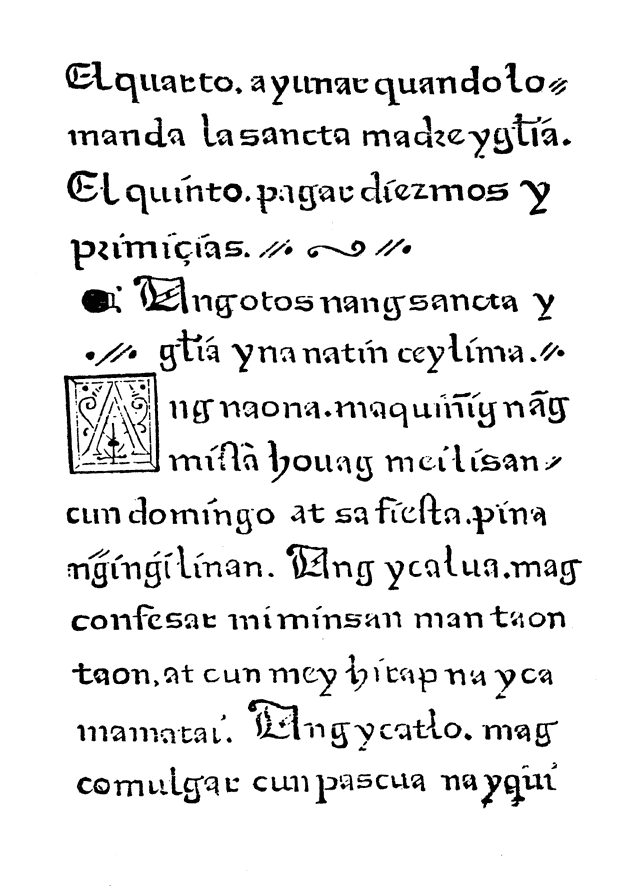 El quarto. ayunar quando lo
manda la sancta madre ygłĩa.
El quinto. pagar diezmos y
primiçias. //. ~ //.
Ang otos nang sancta y
.//. głĩa yna natin ceylima.//.
Ang naona. maquinĩg nãg
misſã houag meilisan/
cun domingo at sa fiesta. pina
ngĩngĩlinan. Ang ycalua. mag
confesar miminsan man taon
taon, at cun mey hirap na yca
mamatai. Ang ycatlo. mag
comulgar cun pascua na yq̃ui